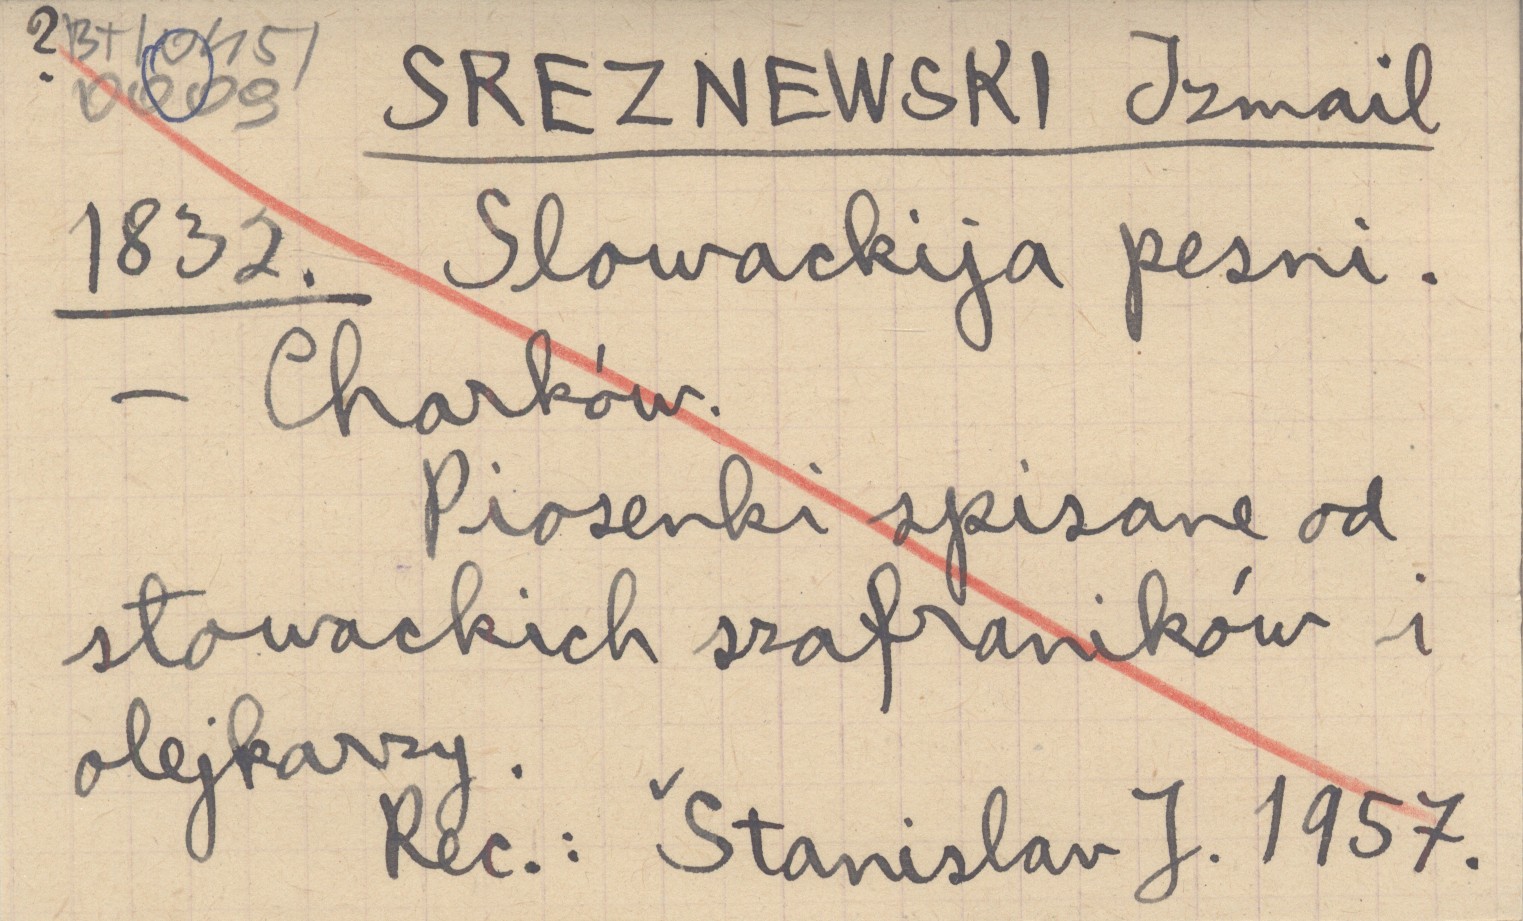 ?
SREZNEWSKI Izmail
1832. Slowackija pesni.
– Charków.
Piosenki spisane od
słowackich szafraników i
olejkarzy.
Rec.: Štanislav J. 1957.